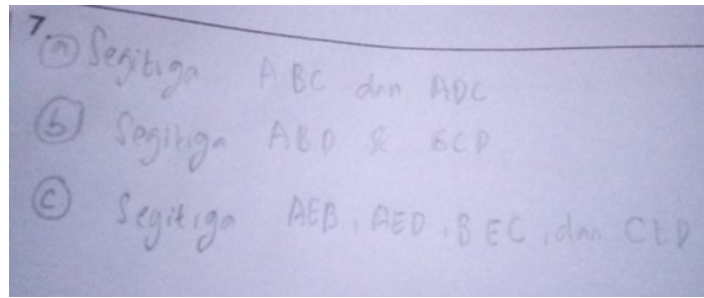 7.
(a) Segitiga ABC dan ADC
(b) Segitiga ABD & BCD
(c) Segitiga AEB, AED, BEC, dan CED